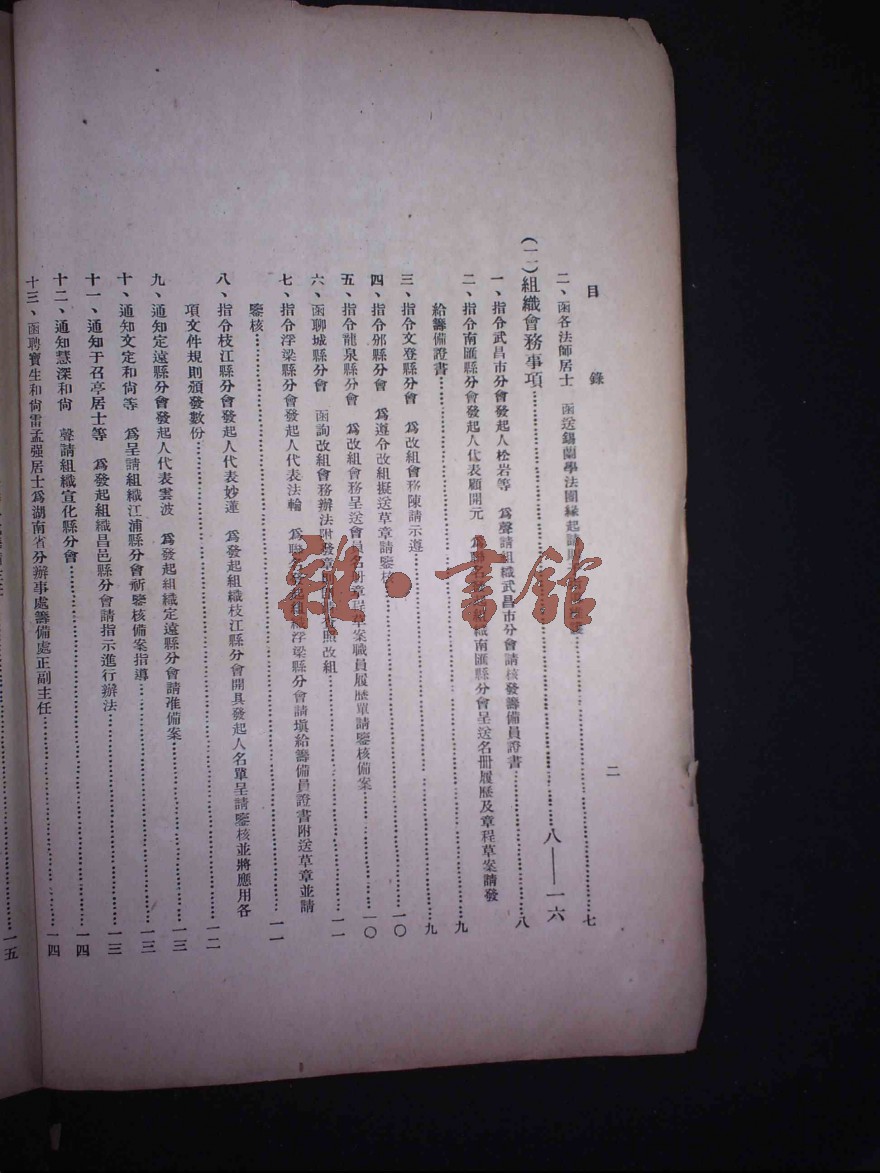 目錄
二
二、函各法師居士　函送錫蘭學法團緣起請……七
(二)組織會務事項……八——一六
一、指令武昌市分會發起人松岩等　爲聲請組織武昌市分會請核發籌備員證書……八
二、指令南匯縣分會發起人代表顧開元　爲聯名發起組織南匯縣分會呈送名册履歷及章程草案請發
給籌備證書……九
三、指令文登縣分會　爲改組會務陳請示遵……九
四、指令郯縣分會　爲遵令改組擬送草章請鑒核……一〇
五、指令龍泉縣分會　爲改組會務呈送會員名册章程草案職員履歷單請鑒核備案……一〇
六、函聊城縣分會　函詢改組會務辦法附發章照改組……一一
七、指令浮梁縣分會發起人代表法輪　爲聯名發起組織浮梁縣分會請塡給籌備員證書附送草章並請
鑒核……一一
八、指令枝江縣分會發起人代表妙蓮　爲發起組織枝江縣分會開具發起人名單呈請鑒核並將應用各
項文件規則頒發數份……一二
九、通知定遠縣分會發起人代表雲波　爲發起組織定遠縣分會請准備案……一三
十、通知文定和尙等　爲呈請組織江浦縣分會祈鑒核備案指導……一三
十一、通知于召亭居士等　爲發起組織昌邑縣分會請指示進行辦法……一三
十二、通知慧深和尙　聲請組織宣化縣分會……一四
十三、函聘寶生和尙雷孟强居士爲湖南省分辦事處籌備處正副主任……一四
……一五
雜·書館